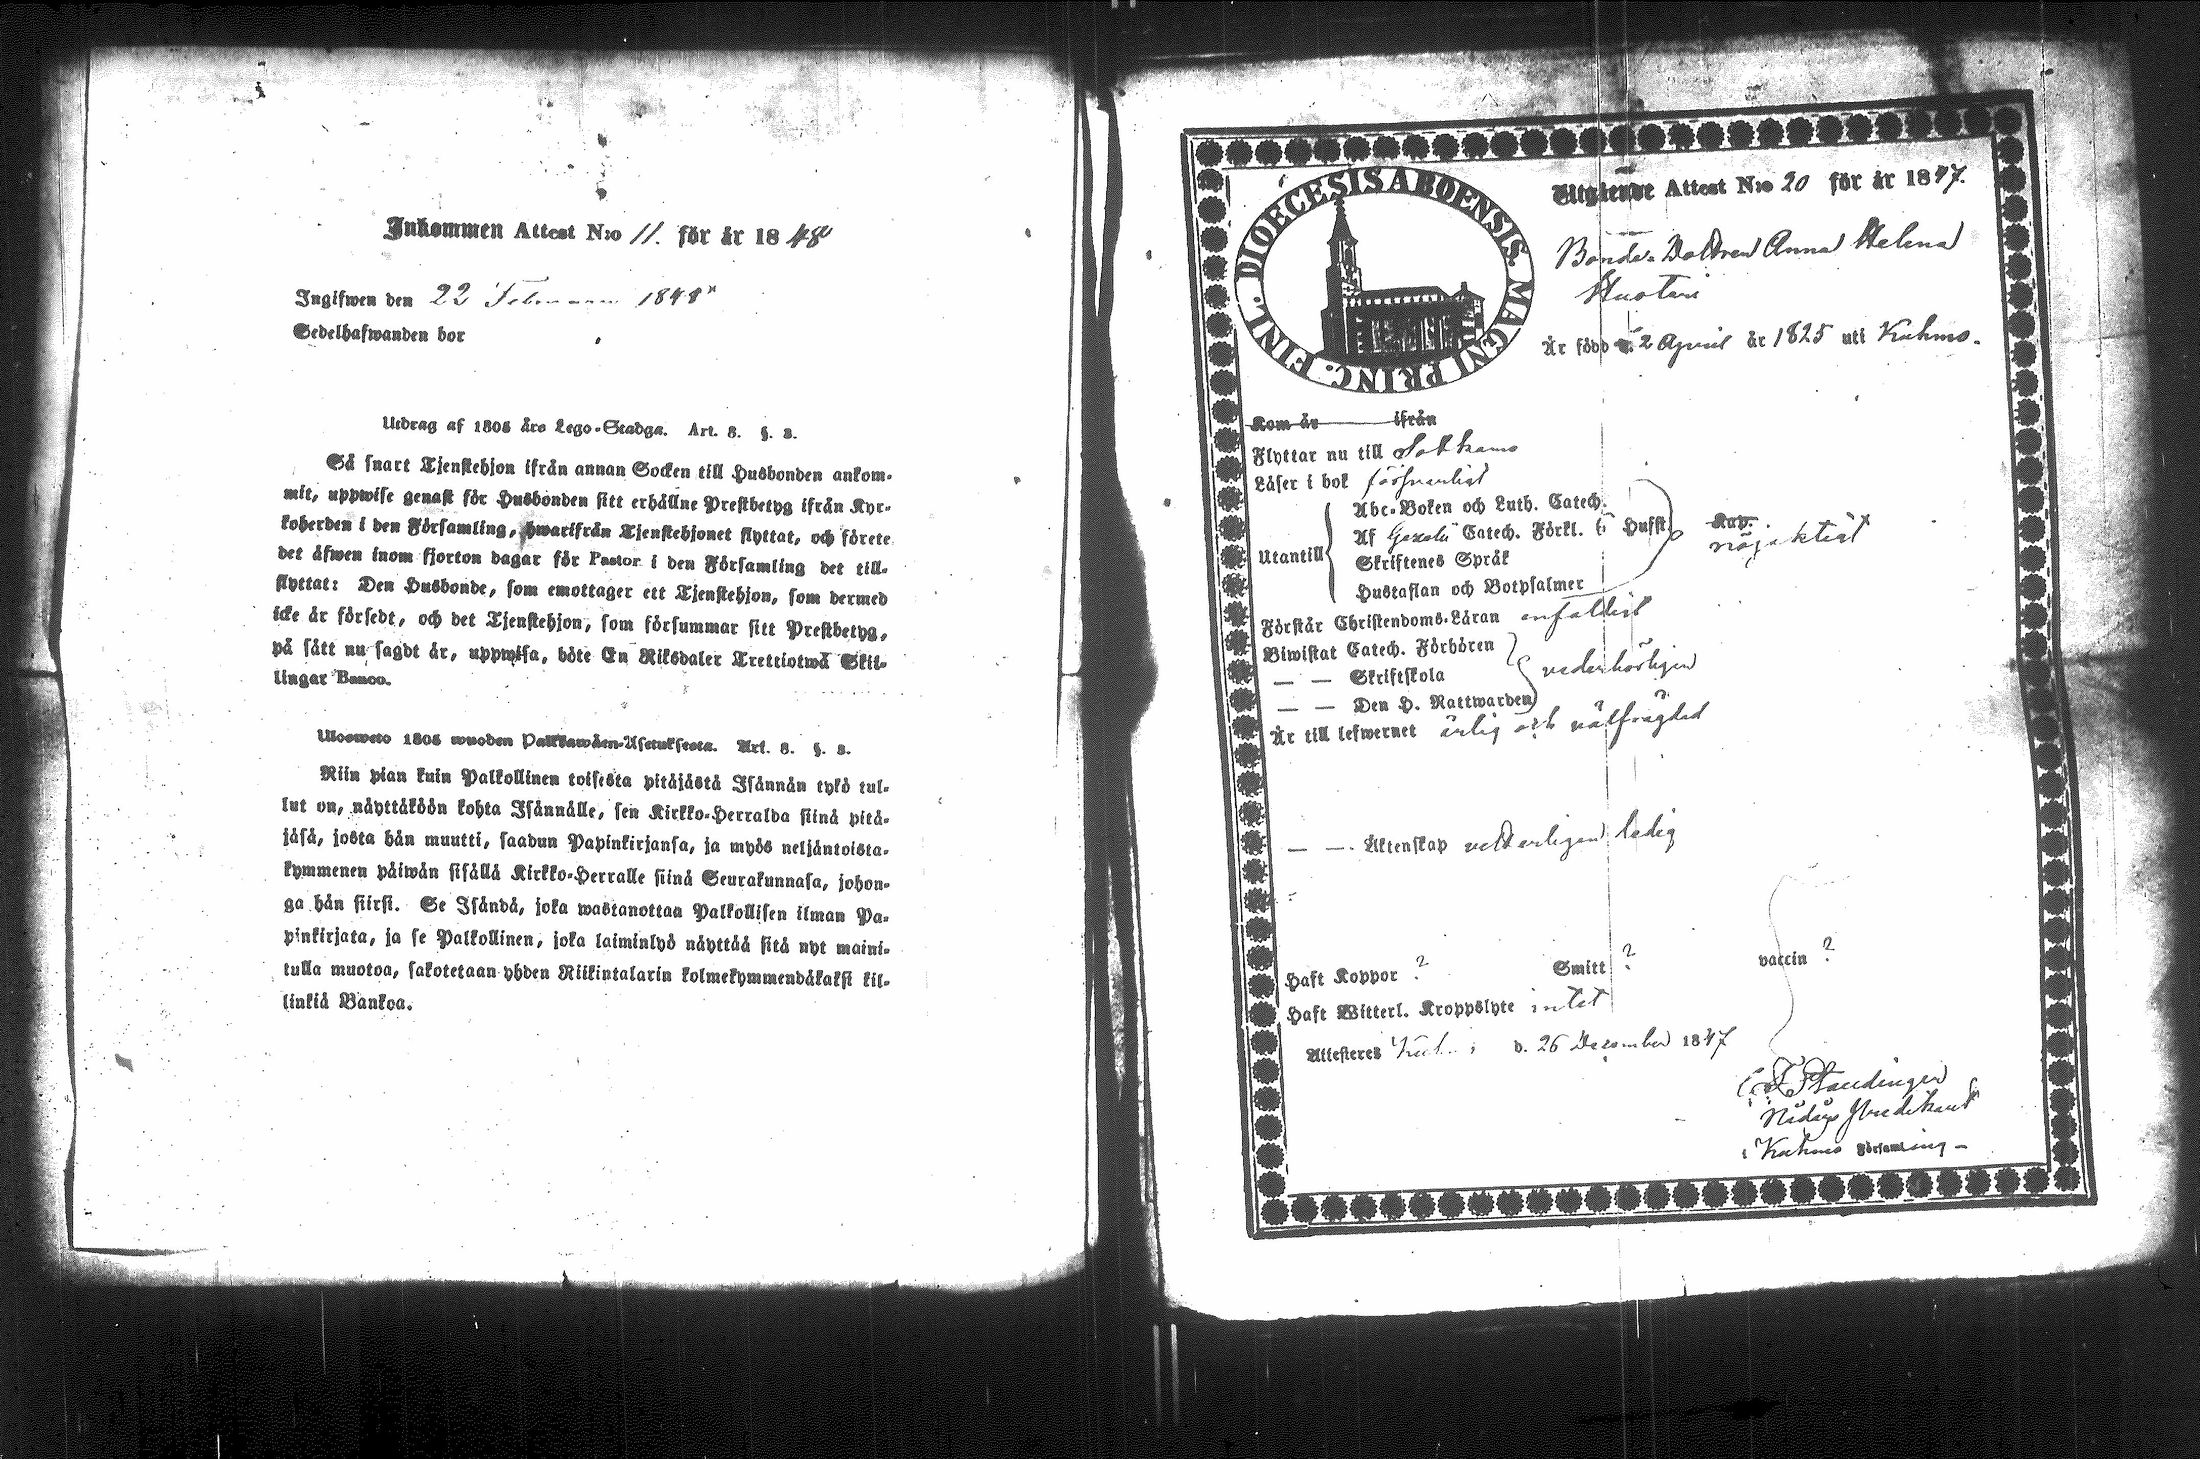 Inkommen Attest N:o 11. för år 1848
Ingifwen den 22 Februari 1848
Sedelhafwanden bor
Utdrag af 1805 års Lego-Stadga. Art. 8. §. 3.
Så snart Tjenstehjon ifrån annan Socken till Husbonden ankom-
mit, uppwise genast för Husbonden sitt erhållne Prestbetyg ifrån Kyr-
koherden i den Församling, hwarifrån Tjenstehjonet flyttat, och förete
det äfwen inom fjorton dagar för Pastor i den Församling det till-
flyttat: Den Husbonde, som emottager ett Tjenstehjon, som dermed
icke är försedt, och det Tjenstehjon, som försummar sitt Prestbetyg,
på sätt nu sagdt är, uppwisa, böte En Riksdaler Trettiotwå Skil-
lingar Banco.
Ulosweto 1805 wuoden Palkkawäen-Asetuksesta. Art. 8. §. 3.
Niin pian kuin Palkollinen toisesta pitäjästä Isännän tykö tul-
lut on, näyttäköön kohta Isännälle, sen Kirkko-Herralda siinä pitä-
jäsä, josta hän muutti, saadun Papinkirjansa, ja myös neljäntoista-
kymmenen päiwän sisällä Kirkko-Herralle siinä Seurakunnasa, johon-
ga hän siirsi. Se Isändä, joka wastanottaa Palkollisen ilman Pa-
pinkirjata, ja se Palkollinen, joka laiminlyö näyttää sitä nyt maini-
tulla muotoa, sakotetaan yhden Riikintalarin kolmekymmendäkaksi kil-
linkiä Bankoa.
DIOECESIS ABOENSIS. MAGNI PRINC. FINL.
Utgående Attest N:o 20 för år 1847.
Bonde-Dottren Anna Helena
Huotari
Är född d. 2 April år 1825 uti Kuhmo.
Kom år ifrån
Flyttar nu till Sotkamo
Läser i bok försvarligt
Utantill
Abc-Boken och Luth. Catech.
Af Gezelii Catech. Förkl. 6 Hufst.
Skriftenes Språk
Hustaflan och Botpsalmer
Kap.
nöjaktigt
Förstår Christendoms-Läran enfaldigt
Biwistat Catech. Förhören
— — Skriftskola
— — Den H. Nattwarden
vederbörligen
Är till lefwernet ärlig och välfrägdad
— — Äktenskap vetterligen ledig
Haft Koppor ? Smitt ? vaccin ?
Haft Witterl. Kroppslyte intet
Attesteres Kuhmo d. 26 December 1847
Staudinger
Nådårs Predikant
i Kuhmo Församling